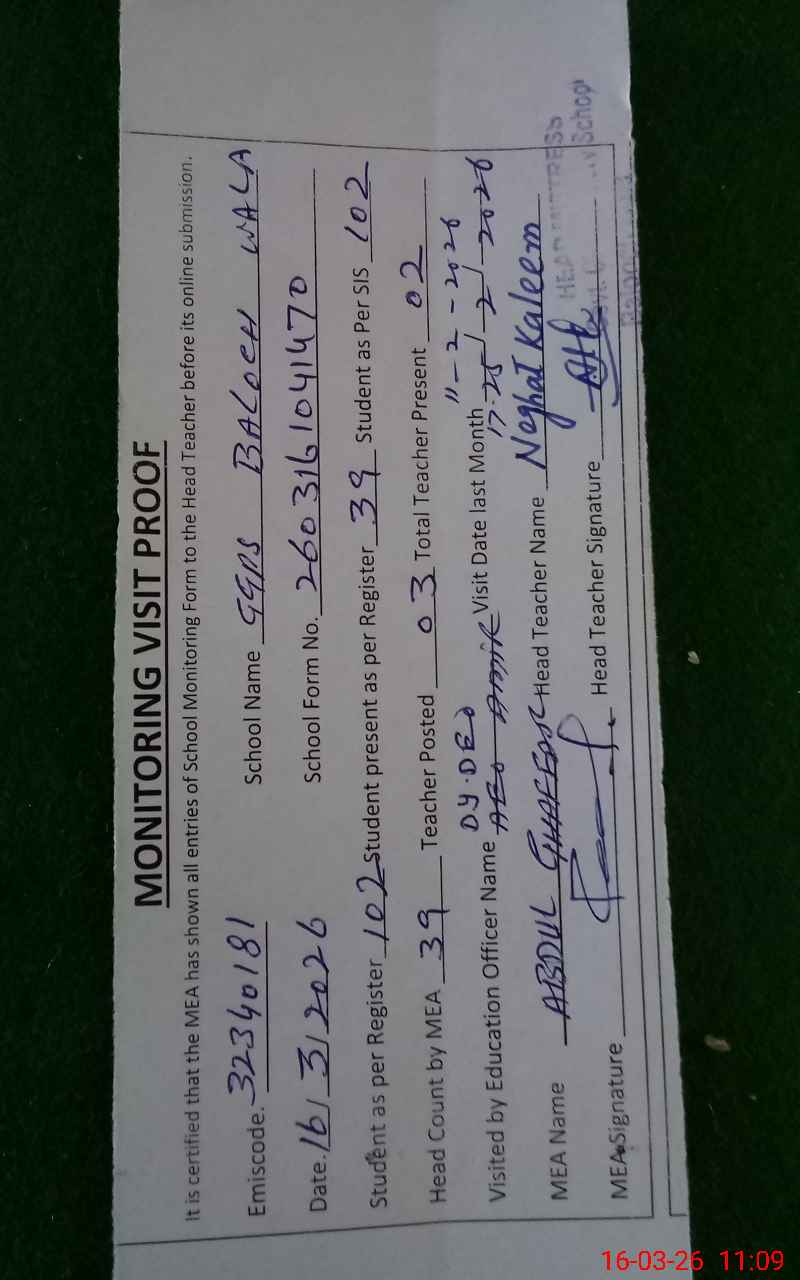 MONITORING VISIT PROOF
It is certified that the MEA has shown all entries of School Monitoring Form to the Head Teacher before its online submission.
Emiscode. 32340181 School Name GGPS BALOCH WALA
Date. 16/3/2026 School Form No. 2603161041470
Student as per Register 102 Student present as per Register 39 Student as Per SIS 102
Head Count by MEA 39 Teacher Posted 03 Total Teacher Present 02
DY.DEO 11-2-2026
Visited by Education Officer Name AEO Visit Date last Month 17-25/2/2026
MEA Name ABDUL GHAFFOOR Head Teacher Name Neghat Kaleem
MEA Signature Head Teacher Signature
HEAD MISTRESS
School
16-03-26 11:09